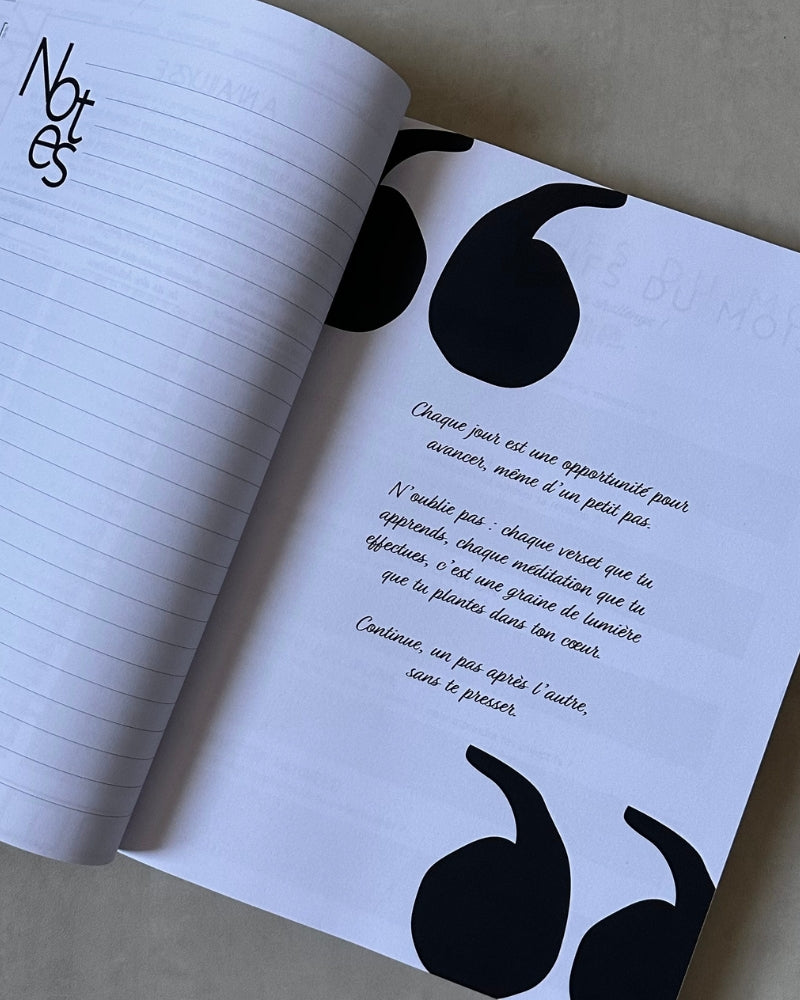 Not
es
Chaque jour est une opportunité pour
avancer, même d'un petit pas.
N'oublie pas : chaque verset que tu
apprends, chaque méditation que tu
effectues, c'est une graine de lumière
que tu plantes dans ton cœur.
Continue, un pas après l'autre,
sans te presser.